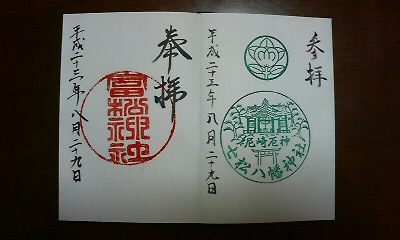 参拝
尼崎厄神
七松八幡神社
平成二十三年八月二十九日
奉拝
富松神社
平成二十三年八月二十九日